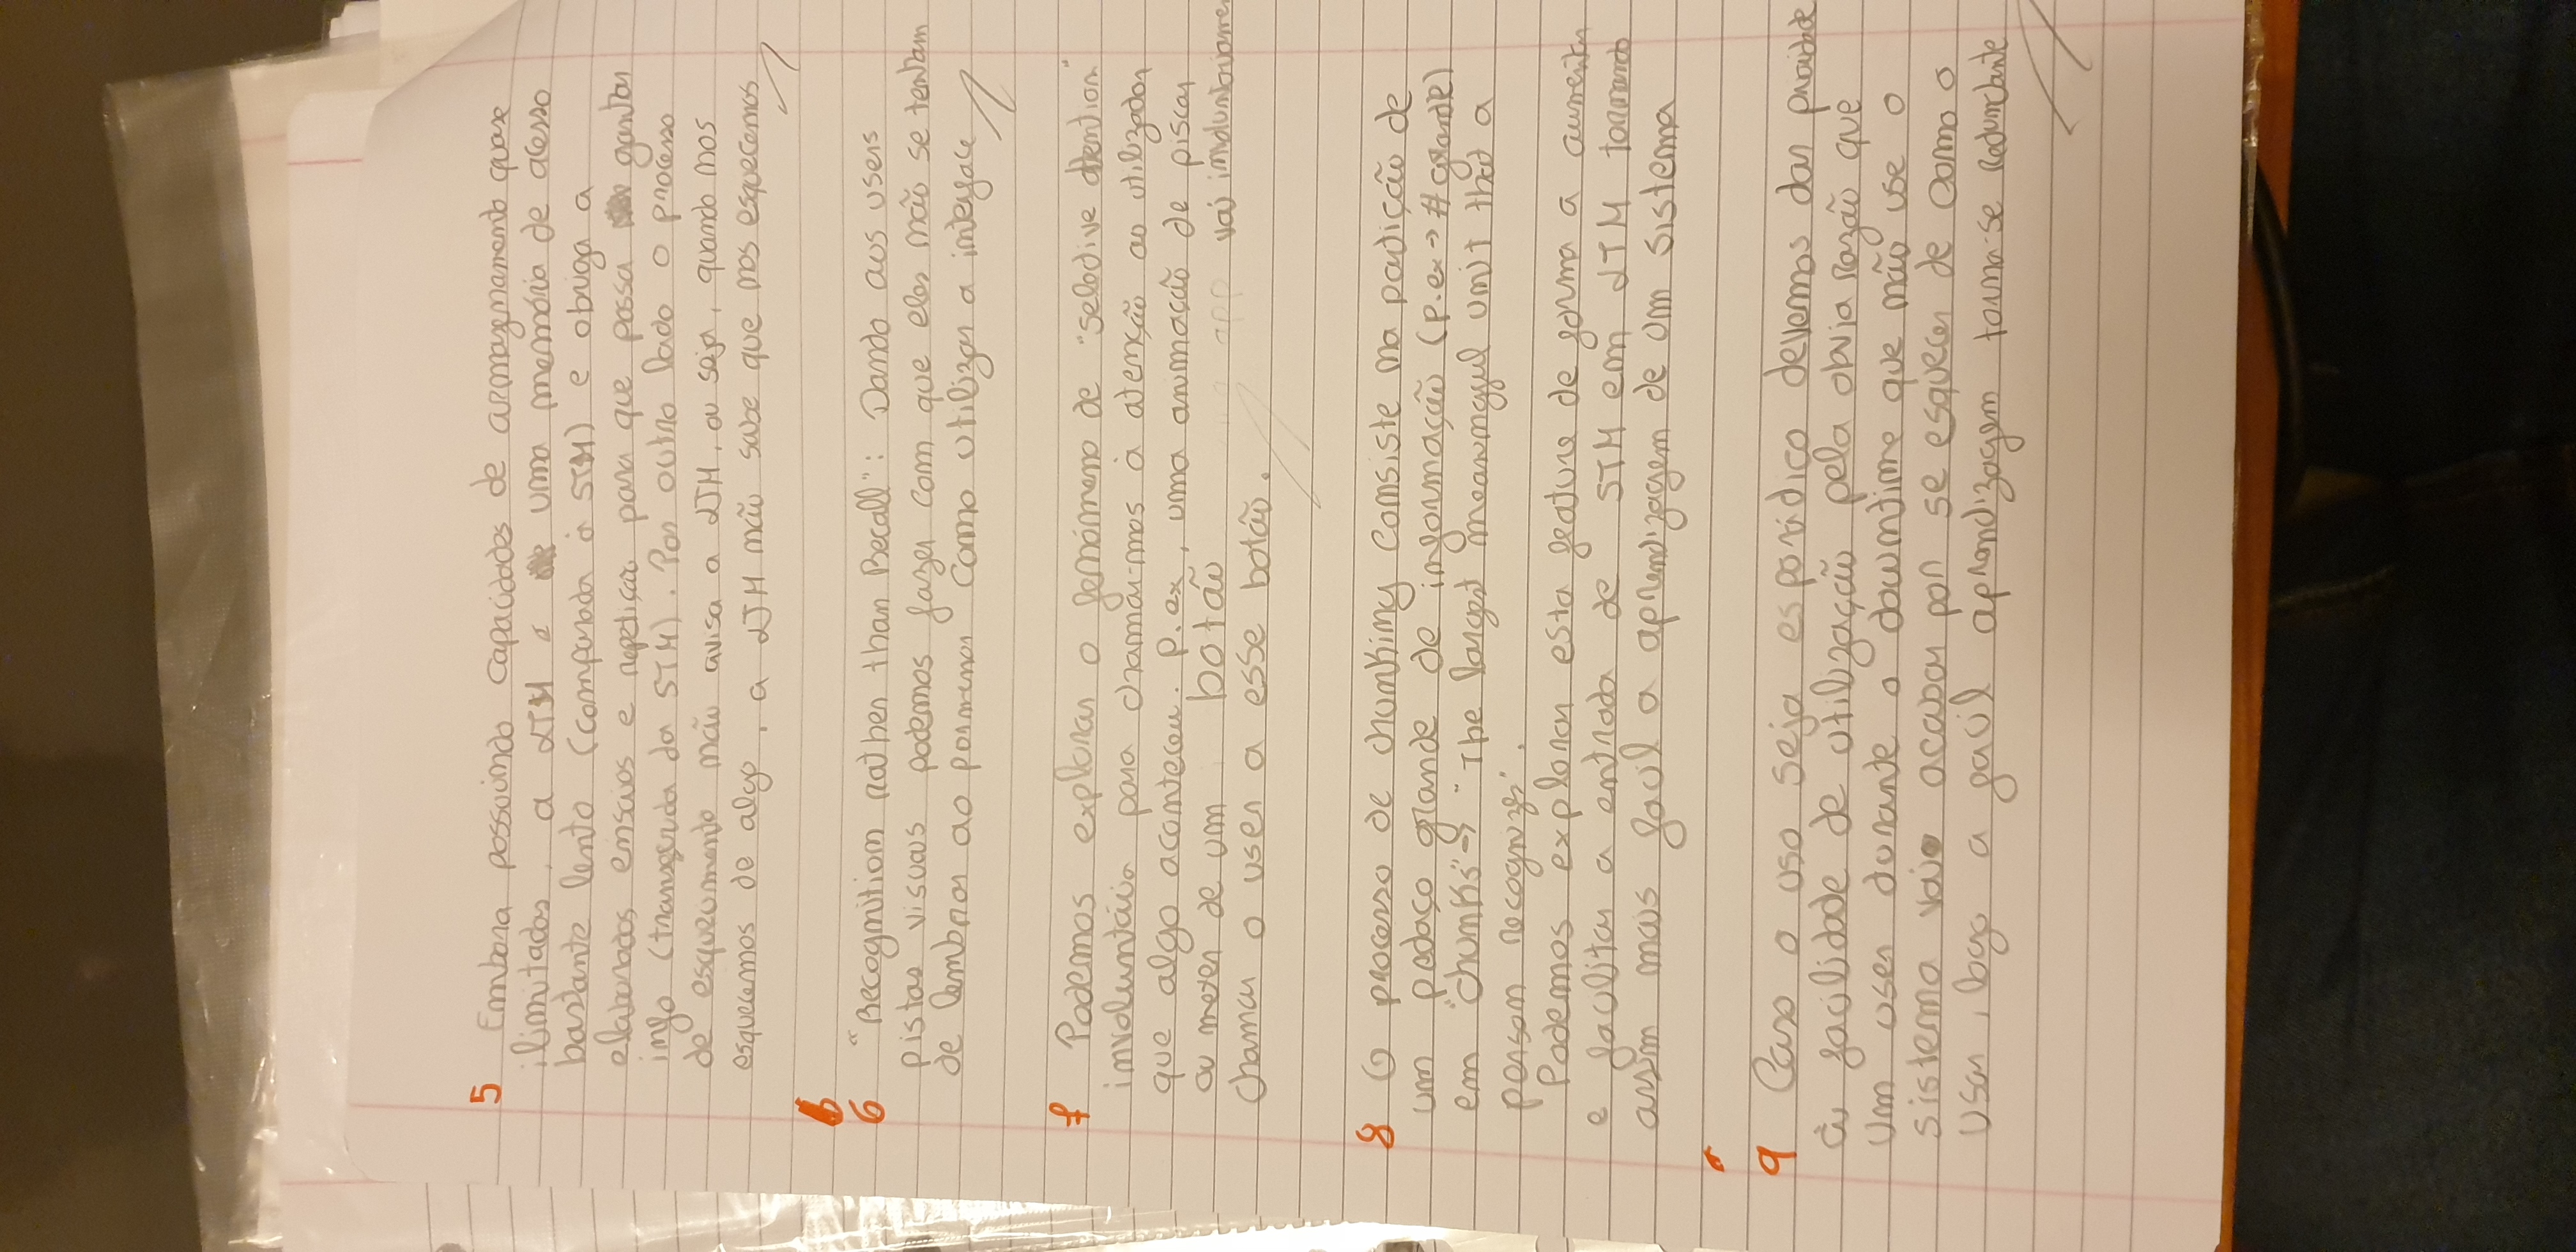 5 Embora possuindo capacidades de armazenamento quase
ilimitadas, a LTM é uma memória de acesso
bastante lento (comparada à STM) e obriga a
elaborados ensaios e repetição para que possa ganhar
info (transferida da STM). Por outro lado o processo
de esquecimento não avisa a LTM, ou seja, quando nos
esquecemos de algo, a LTM não sabe que nos esquecemos
6
6 "Recognition rather than Recall": Dando aos users
pistas visuais podemos fazer com que eles não se tenham
de lembrar ao pormenor como utilizar a interface
7 Podemos explorar o fenómeno de "selective attention"
involuntária para chamar-mos à atenção ao utilizador
que algo aconteceu. P.ex, uma animação de piscar
ou mexer de um botão app vai involuntariame
chamar o user a esse botão.
8 O processo de chunking consiste na partição de
um pedaço grande de informação (p.ex → # grande)
em "chunks" → "The largest meaningful unit that a
person recognizes".
Podemos explorar esta feature de forma a aumentar
e facilitar a entrada de STM em LTM tornando
assim mais facil a aprendizagem de um sistema
9 Caso o uso seja esporádico devemos dar prioridade
à facilidade de utilização pela obvia razão que
um user durante o downtime que não use o
sistema vai acabar por se esquecer de como o
usar, logo a facil aprendizagem torna-se redundante